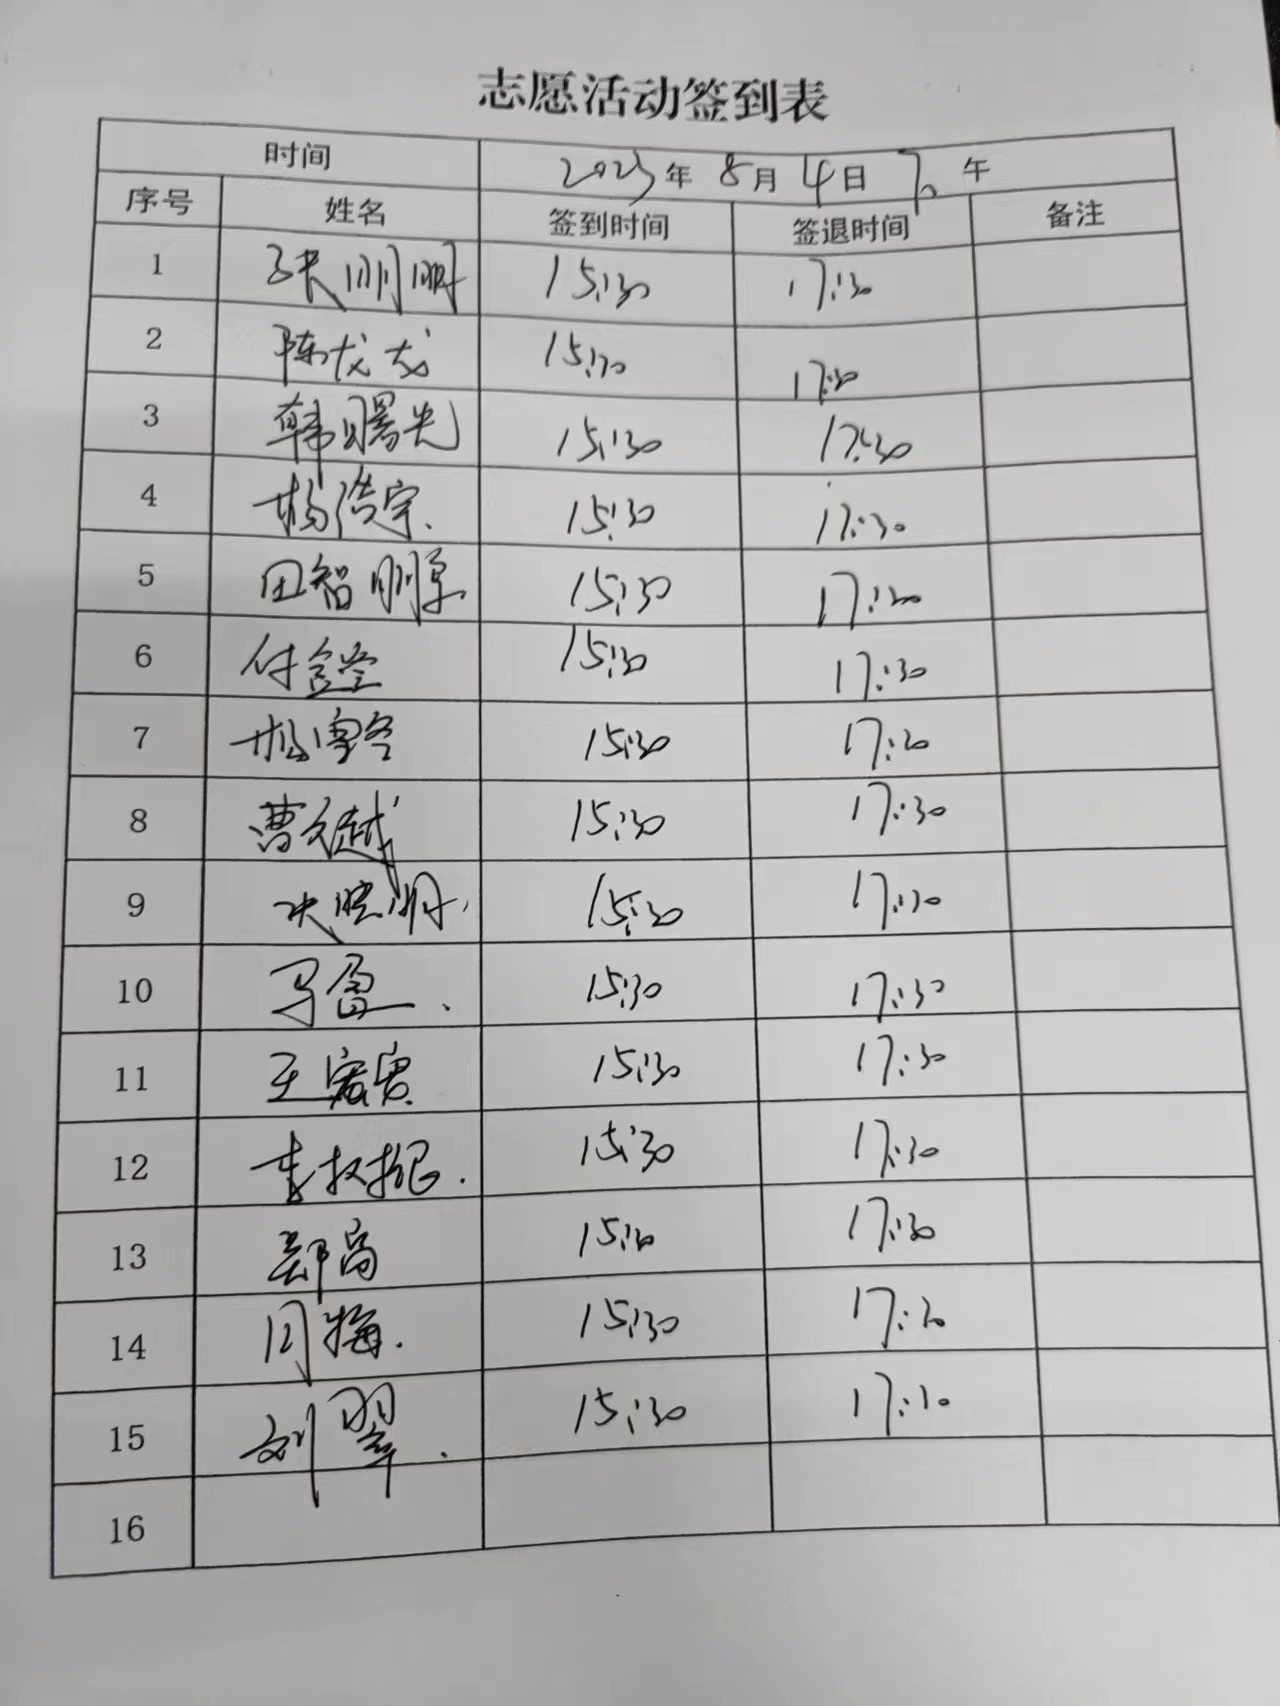 志愿活动签到表
时间 2023年 8月 4日 下午
序号 姓名 签到时间 签退时间 备注
1 张明明 15:30 17:30
2 陈龙龙 15:30 17:30
3 韩曙光 15:30 17:30
4 杨浩宇 15:30 17:30
5 田智 15:30 17:30
6 付 15:30 17:30
7 杨 15:30 17:30
8 曹文越 15:30 17:30
9 15:30 17:30
10 马盈 15:30 17:30
11 王 15:30 17:30
12 李 15:30 17:30
13 郑岛 15:30 17:30
14 周梅 15:30 17:30
15 刘翠 15:30 17:30
16